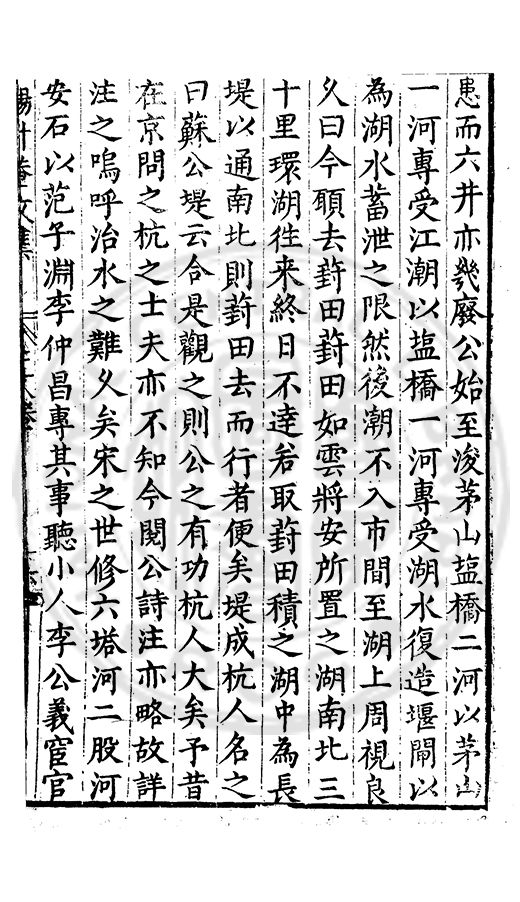 患而六井亦幾廢公始至浚茅山盐橋二河以茅山
一河專受江潮以盐橋一河專受湖水復造堰閘以
為湖水蓄泄之限然後潮不入市間至湖上周視良
乆曰今願去葑田葑田如雲將安所置之湖南北三
十里環湖徃来終日不逹若取葑田積之湖中為長
堤以通南北則葑田去而行者便矣堤成杭人名之
曰蘇公堤云合是觀之則公之有功杭人大矣予昔
在京問之杭之士夫亦不知今閱公詩注亦略故詳
注之嗚呼治水之難乆矣宋之世修六塔河二股河
安石以范子淵李仲昌專其事聽小人李公義宦官